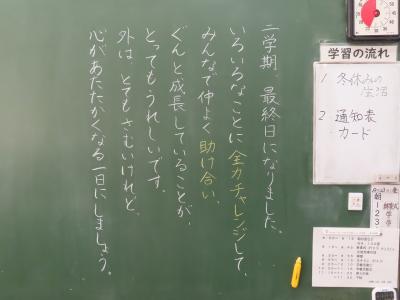 二学期、最終日になりました。
いろいろなことに全力チャレンジして、
みんなで仲よく助け合い、
ぐんと成長していることが、
とってもうれしいです。
外は とてもさむいけれど、
心があたたかくなる一日にしましょう。
学習の流れ
1 冬休みの
生活
2 通知表
カード
朝
1
2
3
学
学